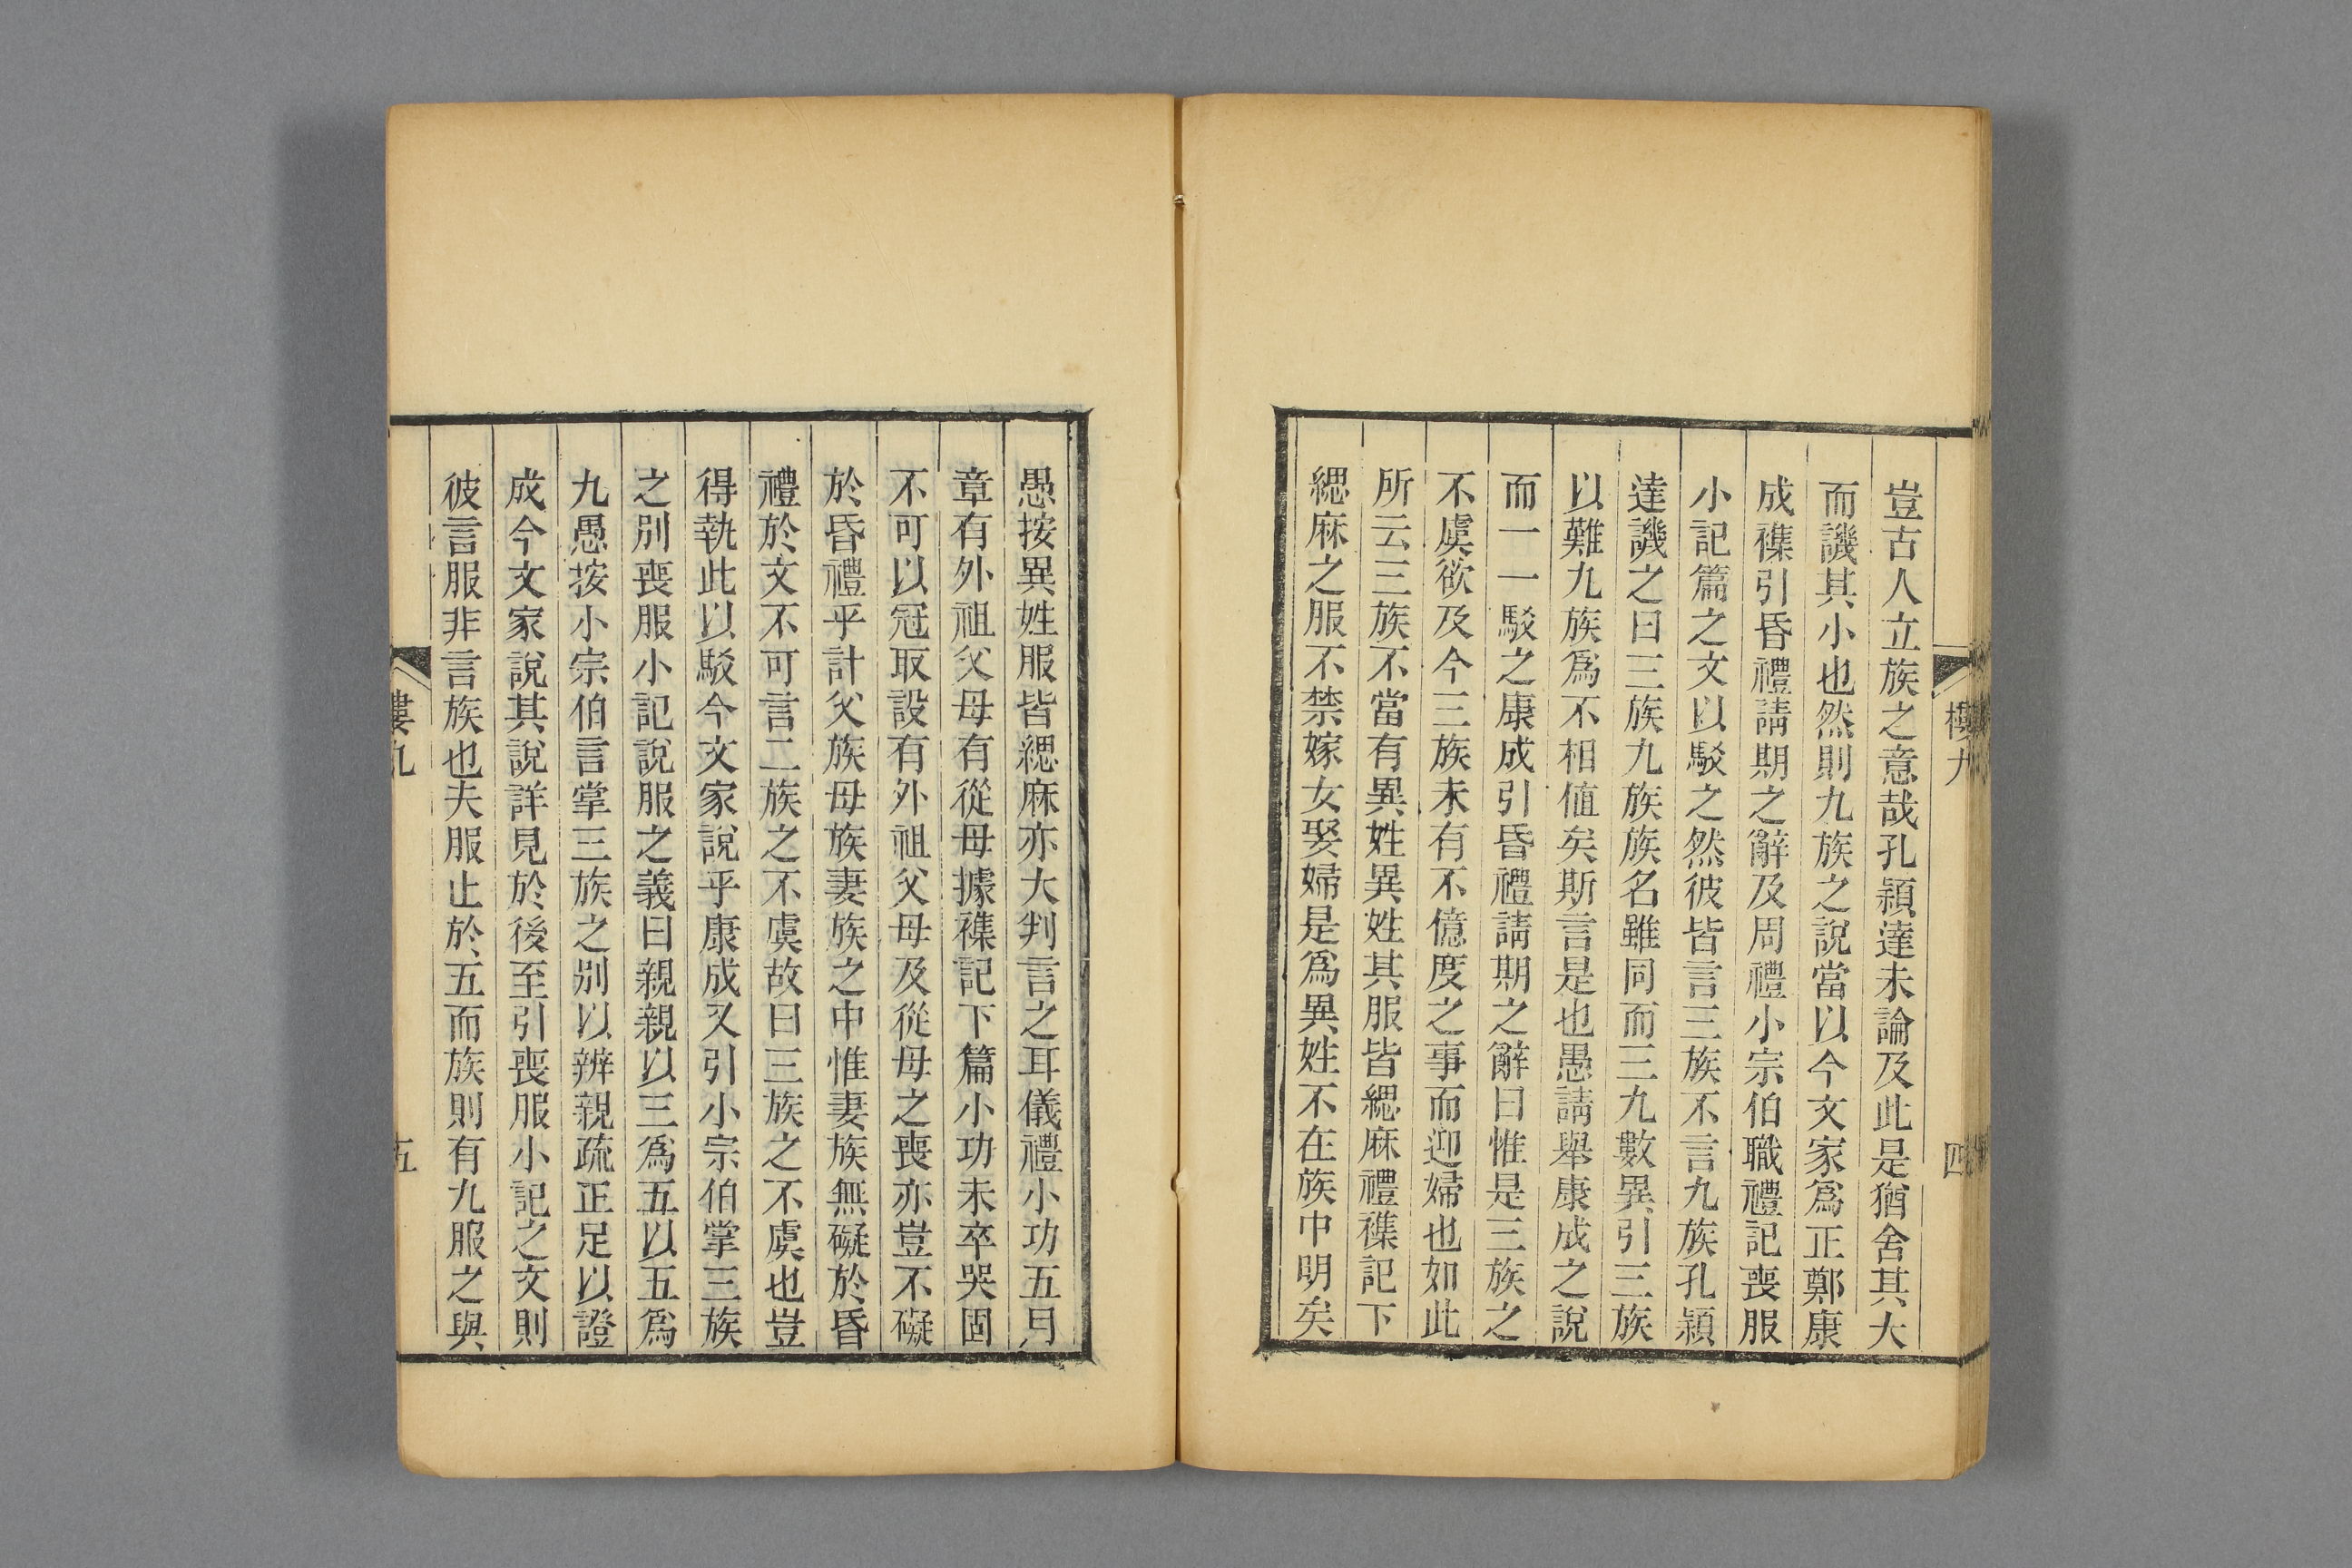 豈古人立族之意哉孔穎達未論及此是猶舍其大
而譏其小也然則九族之說當以今文家爲正鄭康
成襍引昏禮請期之辭及周禮小宗伯職禮記喪服
小記篇之文以駁之然彼皆言三族不言九族孔穎
達譏之曰三族九族族名雖同而三九數異引三族
以難九族爲不相値矣斯言是也愚請舉康成之說
而一一駁之康成引昏禮請期之辭曰惟是三族之
不虞欲及今三族未有不億度之事而迎婦也如此
所云三族不當有異姓異姓其服皆緦麻禮襍記下
緦麻之服不禁嫁女娶婦是爲異姓不在族中明矣
四
愚按異姓服皆緦麻亦大判言之耳儀禮小功五月
章有外祖父母有從母據襍記下篇小功未卒哭固
不可以冠取設有外祖父母及從母之喪亦豈不礙
於昏禮乎計父族母族妻族之中惟妻族無礙於昏
禮於文不可言二族之不虞故曰三族之不虞也豈
得執此以駁今文家說乎康成又引小宗伯掌三族
之別喪服小記說服之義曰親親以三爲五以五爲
九愚按小宗伯言掌三族之別以辨親疏正足以證
成今文家說其說詳見於後至引喪服小記之文則
彼言服非言族也夫服止於五而族則有九服之與
九
五